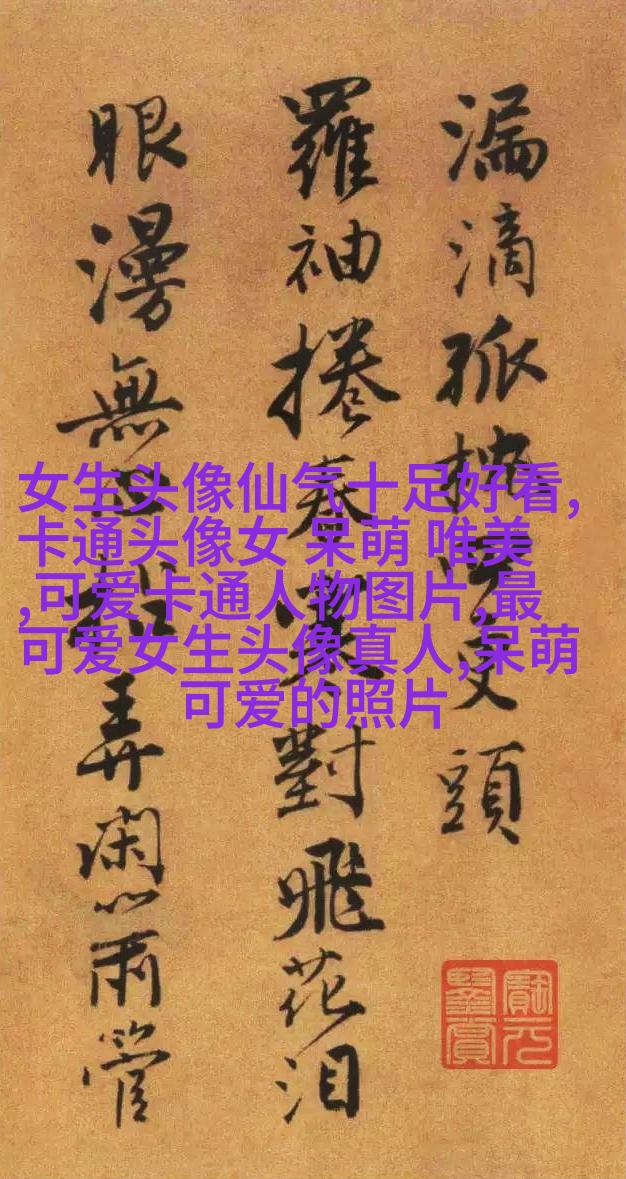 漏滴孤更頭
羅袖捲春對飛花泪
眼漫無弄閑心管
女生头像仙气十足好看,
卡通头像女 呆萌 唯美
,可爱卡通人物图片,最
可爱女生头像真人,呆萌
可爱的照片